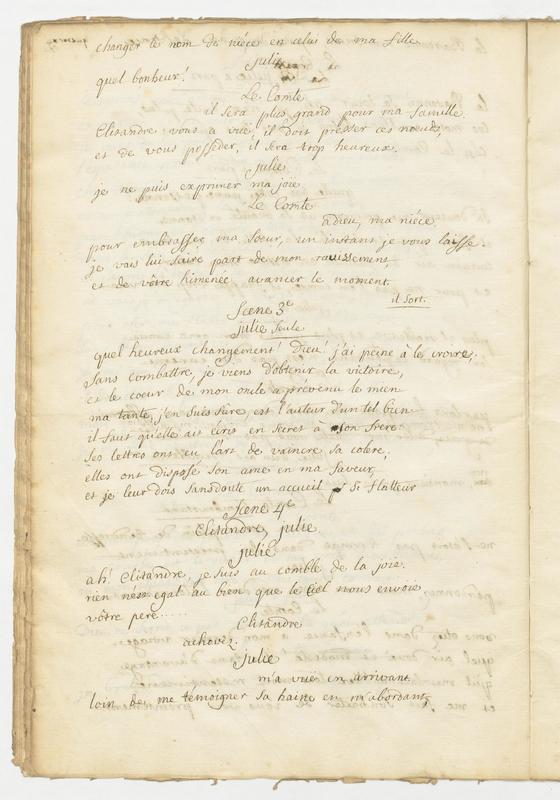 changer le nom de niéce en celui de ma fille
julie
quel bonheur!
Le Comte
il sera plus grand pour ma famille
Clitandre vous a vuë, il doit presser ces nœuds,
et de vous posseder, il sera trop heureux.
julie
je ne puis exprimer ma joïe
Le Comte
adieu, ma niéce
pour embrasser ma sœur, un instant je vous laisse.
je vais lui faire part de mon ravissement,
et de vôtre himenée avancer le moment.
il sort.
Scene 3e
julie seule
quel heureux changement! Dieu! j'ai peine à le croire,
sans combattre, je viens d'obtenir la victoire,
et le coeur de mon oncle a prévenu le mien
ma tante, j'en suis sûre, est l'auteur d'un tel bien
il faut qu'elle ait écris en secret à son frere
ses lettres ont eu l'art de vaincre sa colere,
elles ont disposé son ame en ma faveur,
et je leur dois sans doute un accueil si flatteur
Scene 4e
Clitandre, julie
julie
ah! Clitandre, je suis au comble de la joie.
rien n'est egal au bien que le Ciel nous envoie
vôtre pere.....
Clitandre
achevez.
julie
m'a vuë en arrivant.
loin de me temoigner sa haine en m'abordant,